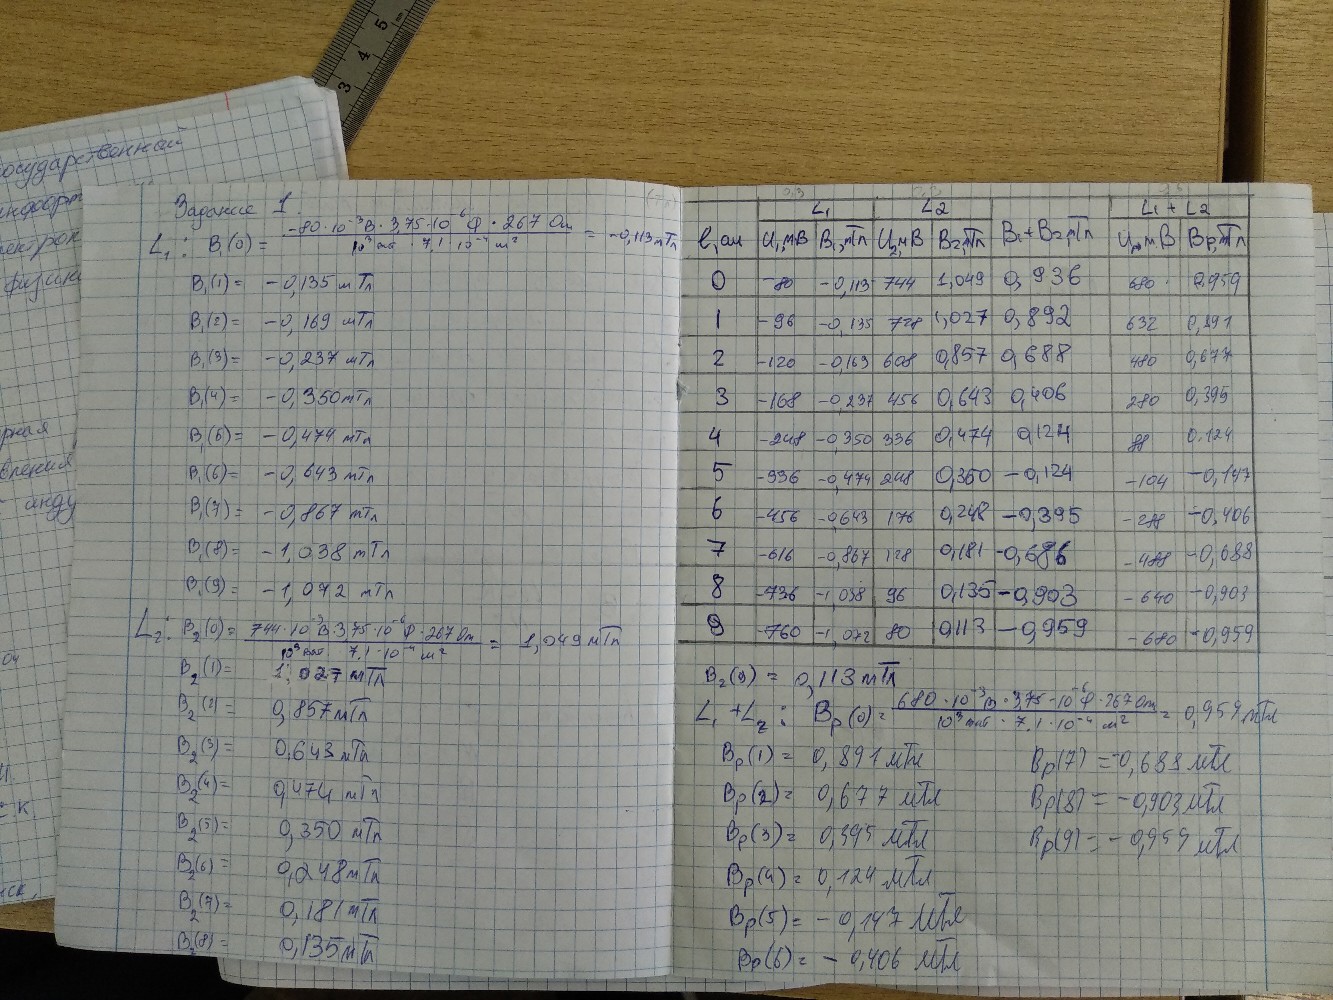 государственный
Задание 1.
L₁: B₁(0) = (-80·10⁻³В·3,75·10⁻⁶Ф·267 Ом)/(10³ · 7,1·10⁻⁴ м²) = -0,113 мТл
B₁(1) = -0,135 мТл
B₁(2) = -0,169 мТл
B₁(3) = -0,237 мТл
B₁(4) = -0,350 мТл
B₁(5) = -0,474 мТл
B₁(6) = -0,643 мТл
B₁(7) = -0,867 мТл
B₁(8) = -1,038 мТл
B₁(9) = -1,072 мТл
L₂: B₂(0) = (744·10⁻³В·3,75·10⁻⁶Ф·267 Ом)/(10³ · 7,1·10⁻⁴ м²) = 1,049 мТл
B₂(1) = 1,027 мТл
B₂(2) = 0,857 мТл
B₂(3) = 0,643 мТл
B₂(4) = 0,474 мТл
B₂(5) = 0,350 мТл
B₂(6) = 0,248 мТл
B₂(7) = 0,181 мТл
B₂(8) = 0,135 мТл
L₁ L₂ L₁ + L₂
l, см U₁,мВ B₁,мТл U₂,мВ B₂,мТл B₁+B₂,мТл U,мВ Bр,мТл
0 -80 -0,113 744 1,049 0,936 680 0,959
1 -96 -0,135 728 1,027 0,892 632 0,891
2 -120 -0,169 608 0,857 0,688 480 0,677
3 -168 -0,237 456 0,643 0,406 280 0,395
4 -248 -0,350 336 0,474 0,124 88 0,124
5 -336 -0,474 248 0,350 -0,124 -104 -0,147
6 -456 -0,643 176 0,248 -0,395 -288 -0,406
7 -616 -0,867 128 0,181 -0,686 -488 -0,688
8 -736 -1,038 96 0,135 -0,903 -640 -0,903
9 -760 -1,072 80 0,113 -0,959 -680 -0,959
B₂(9) = 0,113 мТл
L₁ + L₂: Bр(0) = (680·10⁻³В·3,75·10⁻⁶Ф·267 Ом)/(10³ · 7,1·10⁻⁴ м²) = 0,959 мТл
Bр(1) = 0,891 мТл Bр(7) = -0,688 мТл
Bр(2) = 0,677 мТл Bр(8) = -0,903 мТл
Bр(3) = 0,395 мТл Bр(9) = -0,959 мТл
Bр(4) = 0,124 мТл
Bр(5) = -0,147 мТл
Bр(6) = -0,406 мТл
3 4 5